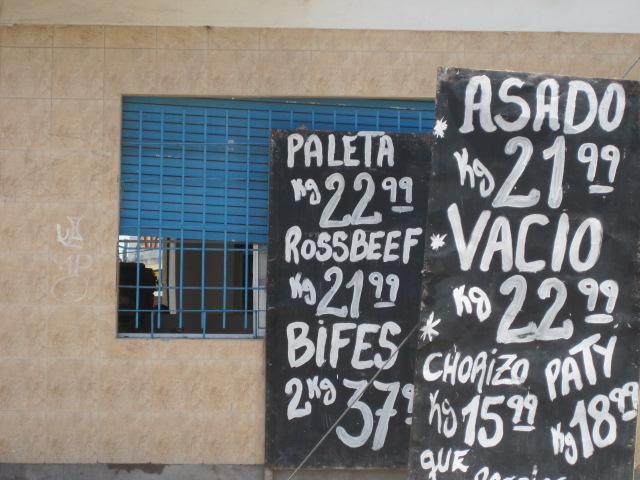 PALETA
Kg 22 99
ROSSBEEF
Kg 21 99
BIFES
2Kg 37 9
* ASADO
Kg 21 99
* VACIO
Kg 22 99
* CHORIZO PATY
Kg 15 99 Kg 18 99
QUE